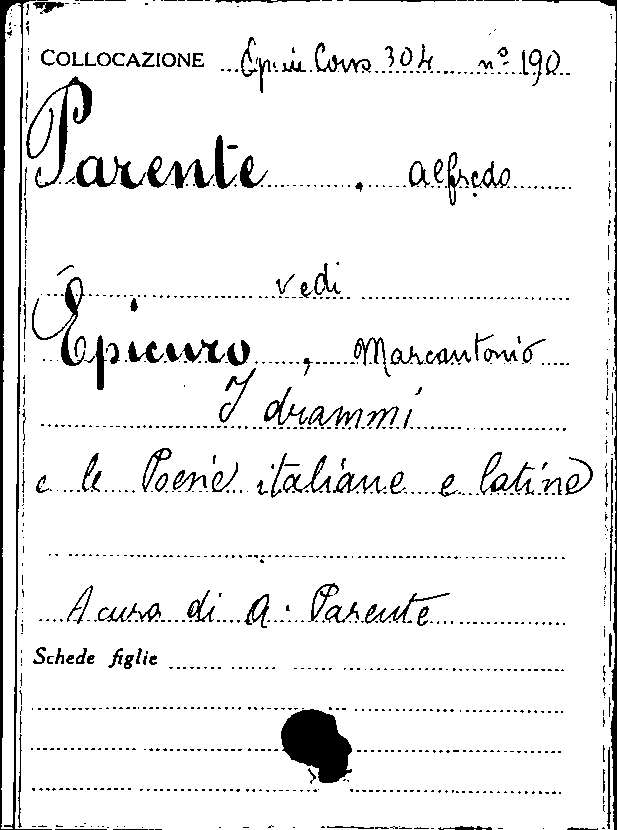 COLLOCAZIONE Cons 304 nº 190
Parente, Alfredo
vedi
Epicuro, Marcantonio
I drammi
e le Poesie italiane e latine
A cura di A. Parente
Schede figlie